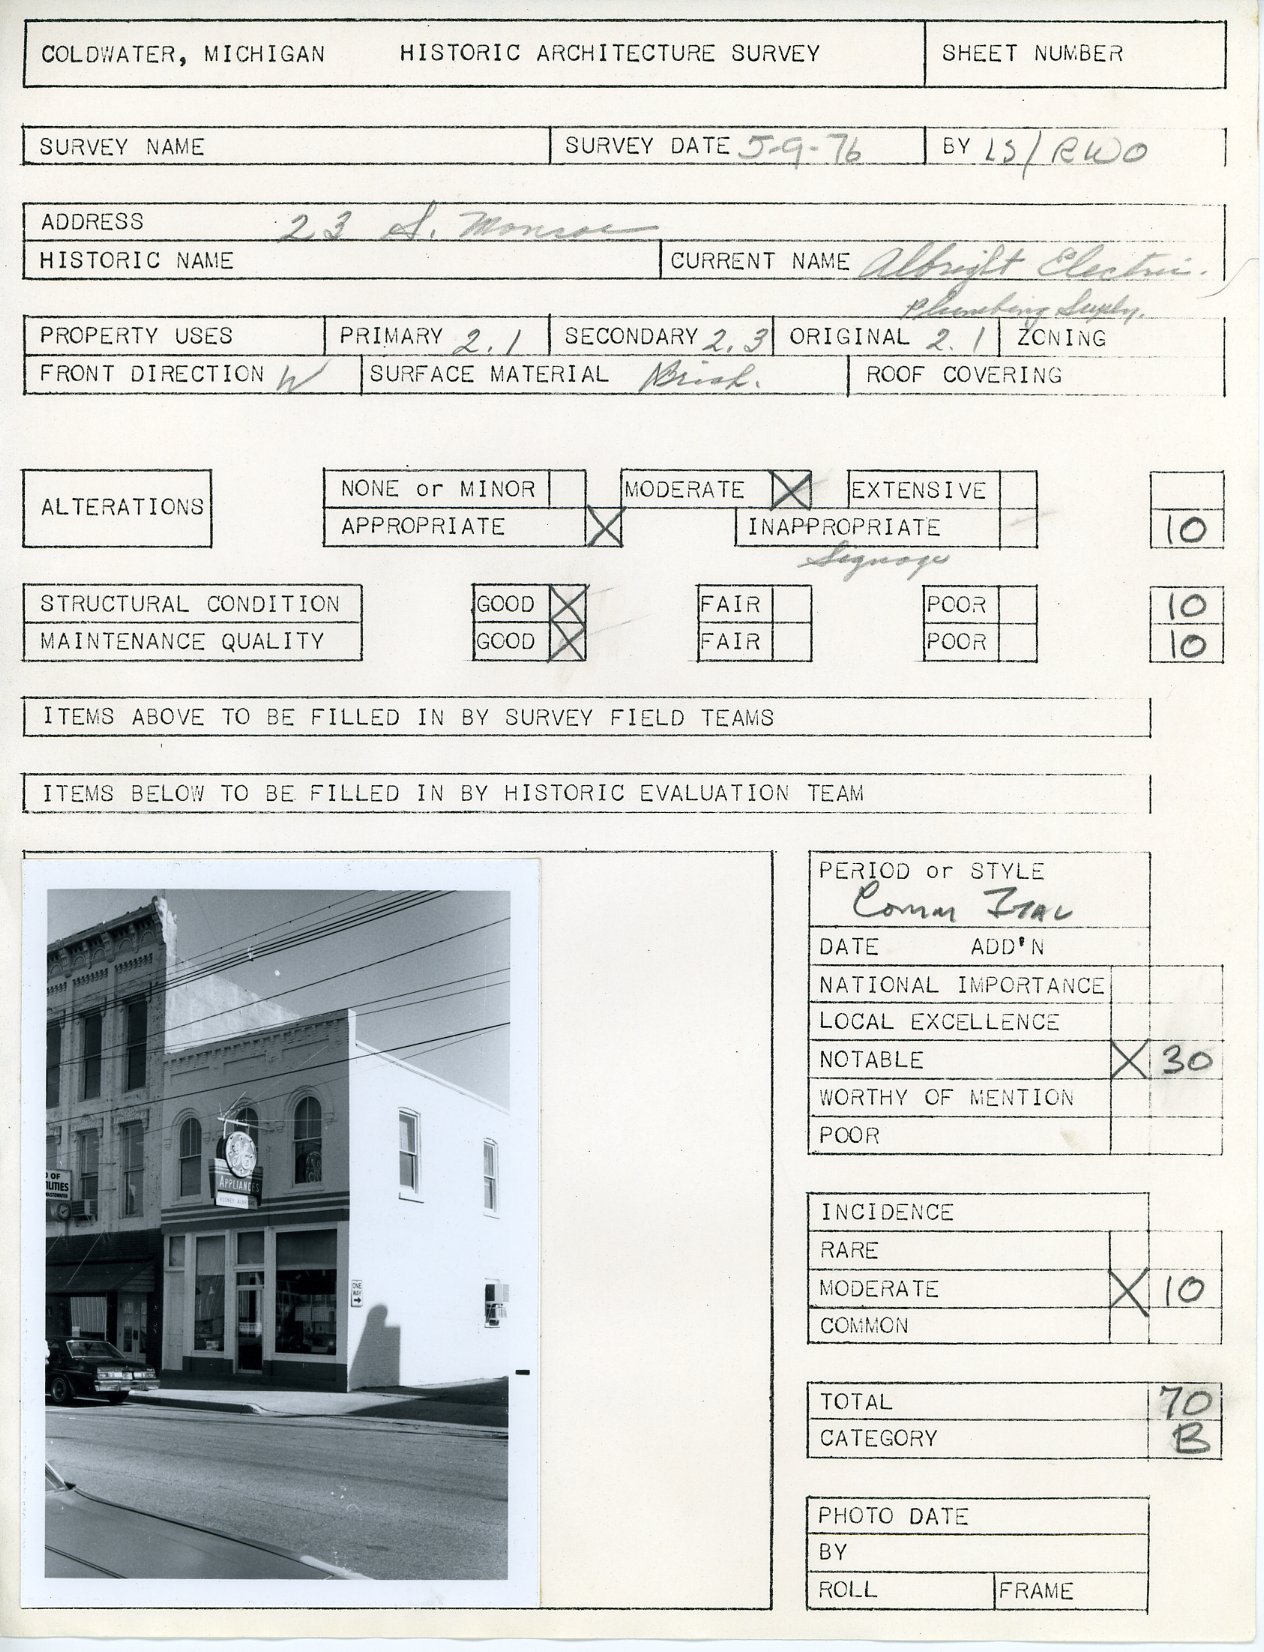 COLDWATER, MICHIGAN HISTORIC ARCHITECTURE SURVEY SHEET NUMBER
SURVEY NAME SURVEY DATE 5-9-76 BY LS/RWO
ADDRESS 23 S. Monroe
HISTORIC NAME CURRENT NAME Albright Electric.
Plumbing Supply.
PROPERTY USES PRIMARY 2.1 SECONDARY 2.3 ORIGINAL 2.1 ZONING
FRONT DIRECTION W SURFACE MATERIAL Brick. ROOF COVERING
ALTERATIONS NONE or MINOR MODERATE X EXTENSIVE
APPROPRIATE X INAPPROPRIATE 10
Signage
STRUCTURAL CONDITION GOOD X FAIR POOR 10
MAINTENANCE QUALITY GOOD X FAIR POOR 10
ITEMS ABOVE TO BE FILLED IN BY SURVEY FIELD TEAMS
ITEMS BELOW TO BE FILLED IN BY HISTORIC EVALUATION TEAM
PERIOD or STYLE
Comm Ital
DATE ADD'N
NATIONAL IMPORTANCE
LOCAL EXCELLENCE
NOTABLE X 30
WORTHY OF MENTION
POOR
INCIDENCE
RARE
MODERATE X 10
COMMON
TOTAL 70
CATEGORY B
PHOTO DATE
BY
ROLL FRAME
GE
APPLIANCES
OF
ILITIES
ONE
WAY